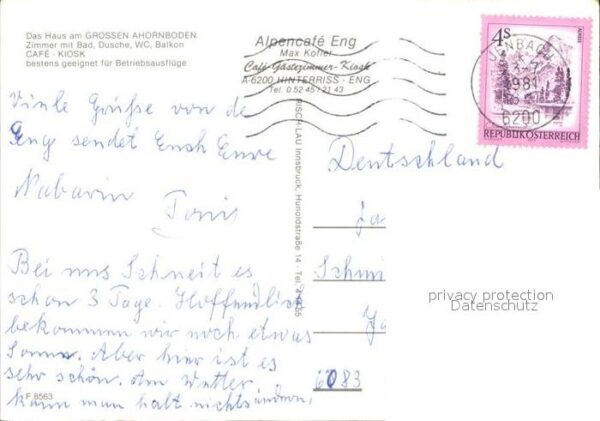 Das Haus am GROSSEN AHORNBODEN
Zimmer mit Bad, Dusche, WC, Balkon
CAFÉ - KIOSK
bestens geeignet für Betriebsausflüge
Alpencafé Eng
Max Kofler
Café-Gästezimmer-Kiosk
A-6200 HINTERRISS - ENG
Tel. 0 52 45 / 21 43
4S
1981
6200
REPUBLIK ÖSTERREICH
RISCH-LAU Innsbruck, Hunoldstraße 14 - Tel.
Viele Grüße von de
Eng sendet Euch Eure
Nabarin
Tonis
Deutschland
Ja
Schmi
Ja
6083
Bei uns Schneit es
schon 3 Tage. Hoffendlich
bekommen wir noch etwas
Sonne. Aber hier ist es
sehr schön. Am Wetter
kann man halt nichts ändern.
F 8563
privacy protection
Datenschutz